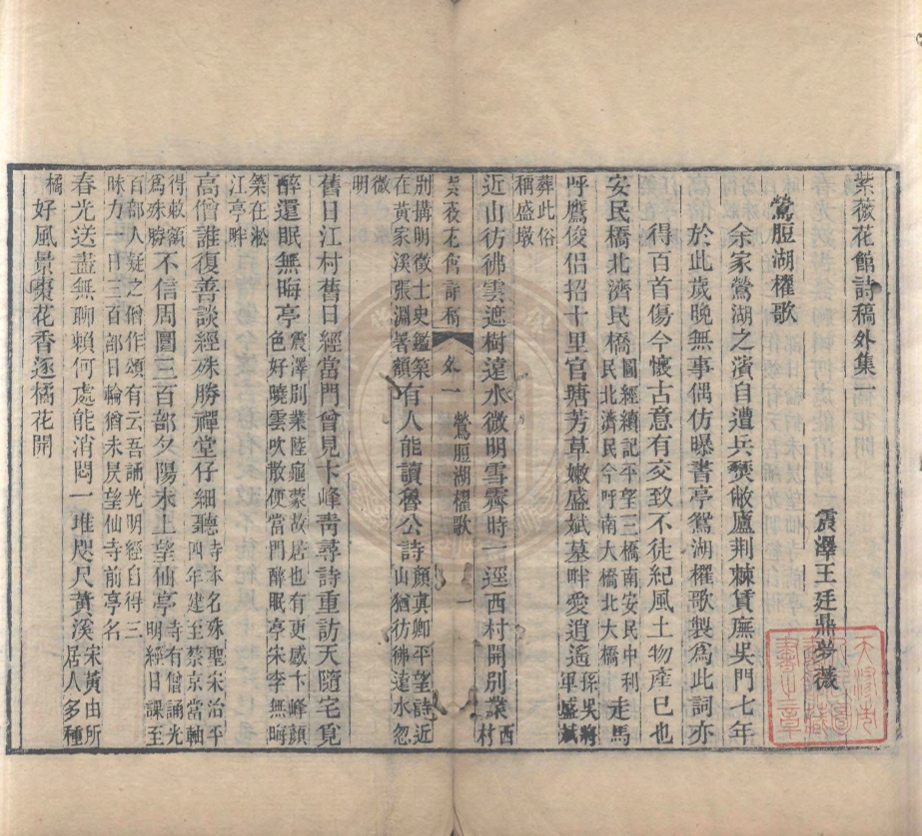 紫薇花館詩稿外集一
震澤王廷鼎夢薇
鶯脰湖櫂歌
余家鶯湖之濱自遭兵燹敝廬荆棘賃廡吳門七年
於此歲晚無事偶仿曝書亭鴛湖櫂歌製爲此詞亦
得百首傷今懷古意有交致不徒紀風土物產已也
安民橋北濟民橋圖經續記平望三橋南安民中利民北濟民今呼南大橋北大橋走馬
呼鷹俊侶招十里官塘芳草嫩盛斌墓畔愛逍遙孫吳將軍盛斌
葬此俗稱盛墩
近山彷彿雲遮樹遠水微明雪霽時一逕西村開別業西村
紫薇花館詩稿 外一 鶯脰湖櫂歌 一
別搆明徵士史鑑築在黃家溪張淵署額有人能讀魯公詩顏真卿平望詩近山猶彷彿遠水忽
微明
舊日江村舊日經當門曾見卞峰靑尋詩重訪天隨宅覓
醉還眠無晦亭震澤別業陸龜蒙故居也有更感卞峰顏色好曉雲吹散便當門醉眠亭宋李無晦
築在淞江亭畔
高僧誰復善談經殊勝禪堂仔細聽寺本名殊聖宋治平四年建至禁京當軸
得敕額爲殊勝不信周圜三百部夕陽未上望仙亭寺有僧誦光明經日課至
百部人疑之僧作頌有云吾誦光明經自得三昧力一日三百部日輪猶未昃望仙寺前亭名
春光送盡無聊賴何處能消悶一堆咫尺黃溪宋黃由所居人多種
橘好風景棗花香逐橘花開